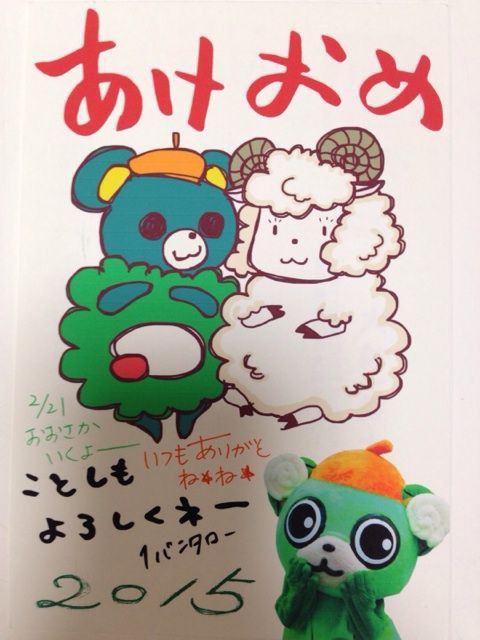 あけおめ
2/21
おおさか
いくよー
いつもありがと
ね★ね★
ことしも
よろしくネー
1バンタロー
2015